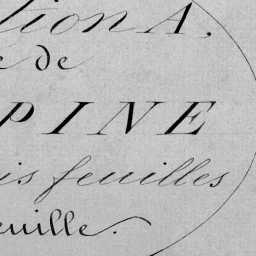 tion A.
e de
PINE
is feuilles
euille.